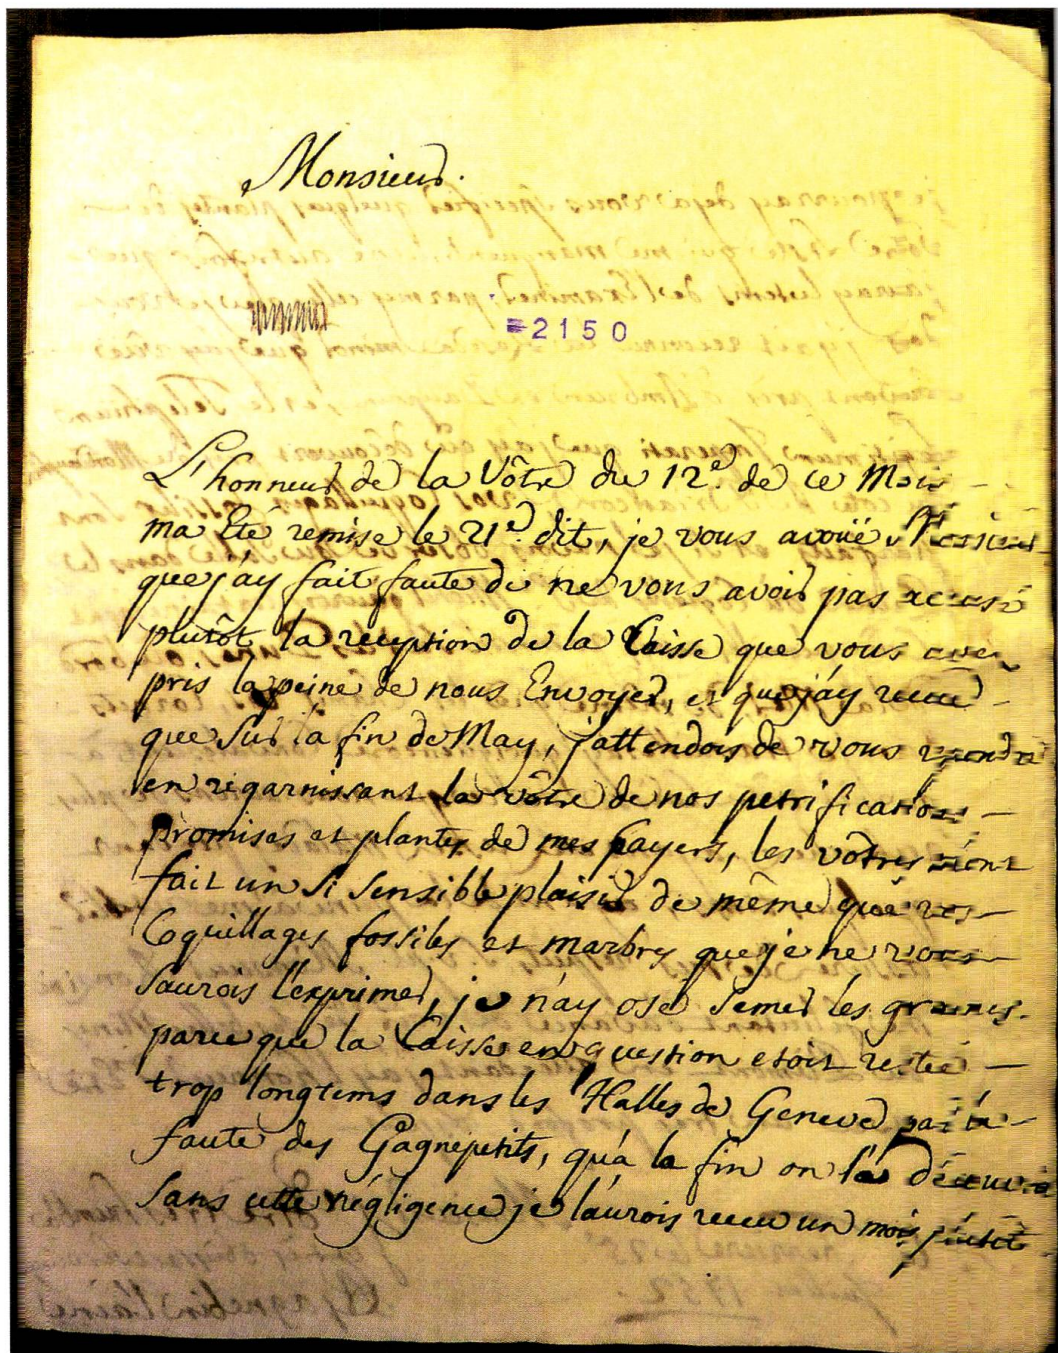 Monsieur.
2150
L'honneur de la Vôtre du 12e. de ce Mois
ma Eté remise le 21e. dit, je vous avoüe Monsieur
que j'ay fait faute de ne vous avoir pas accusé
plutôt la reception de la Caisse que vous avez
pris la peine de nous Envoyer, et que j'ay receue
que sur la fin de May, j'attendois de vous
en regarnissant la vôtre de nos petrifications
promises et plantes de mes payers, les vôtres m'ont
fait un si sensible plaisir de même que vos
Coquillages fossiles et marbres que je ne vous
saurois l'exprimer, je n'ay osé semer les graines
parce que la Caisse en question etoit restée
trop longtems dans les Halles de Geneve par la
faute des Gagnepetits, qu'à la fin on l'a
sans cette négligence je l'aurois receu un mois plutôt